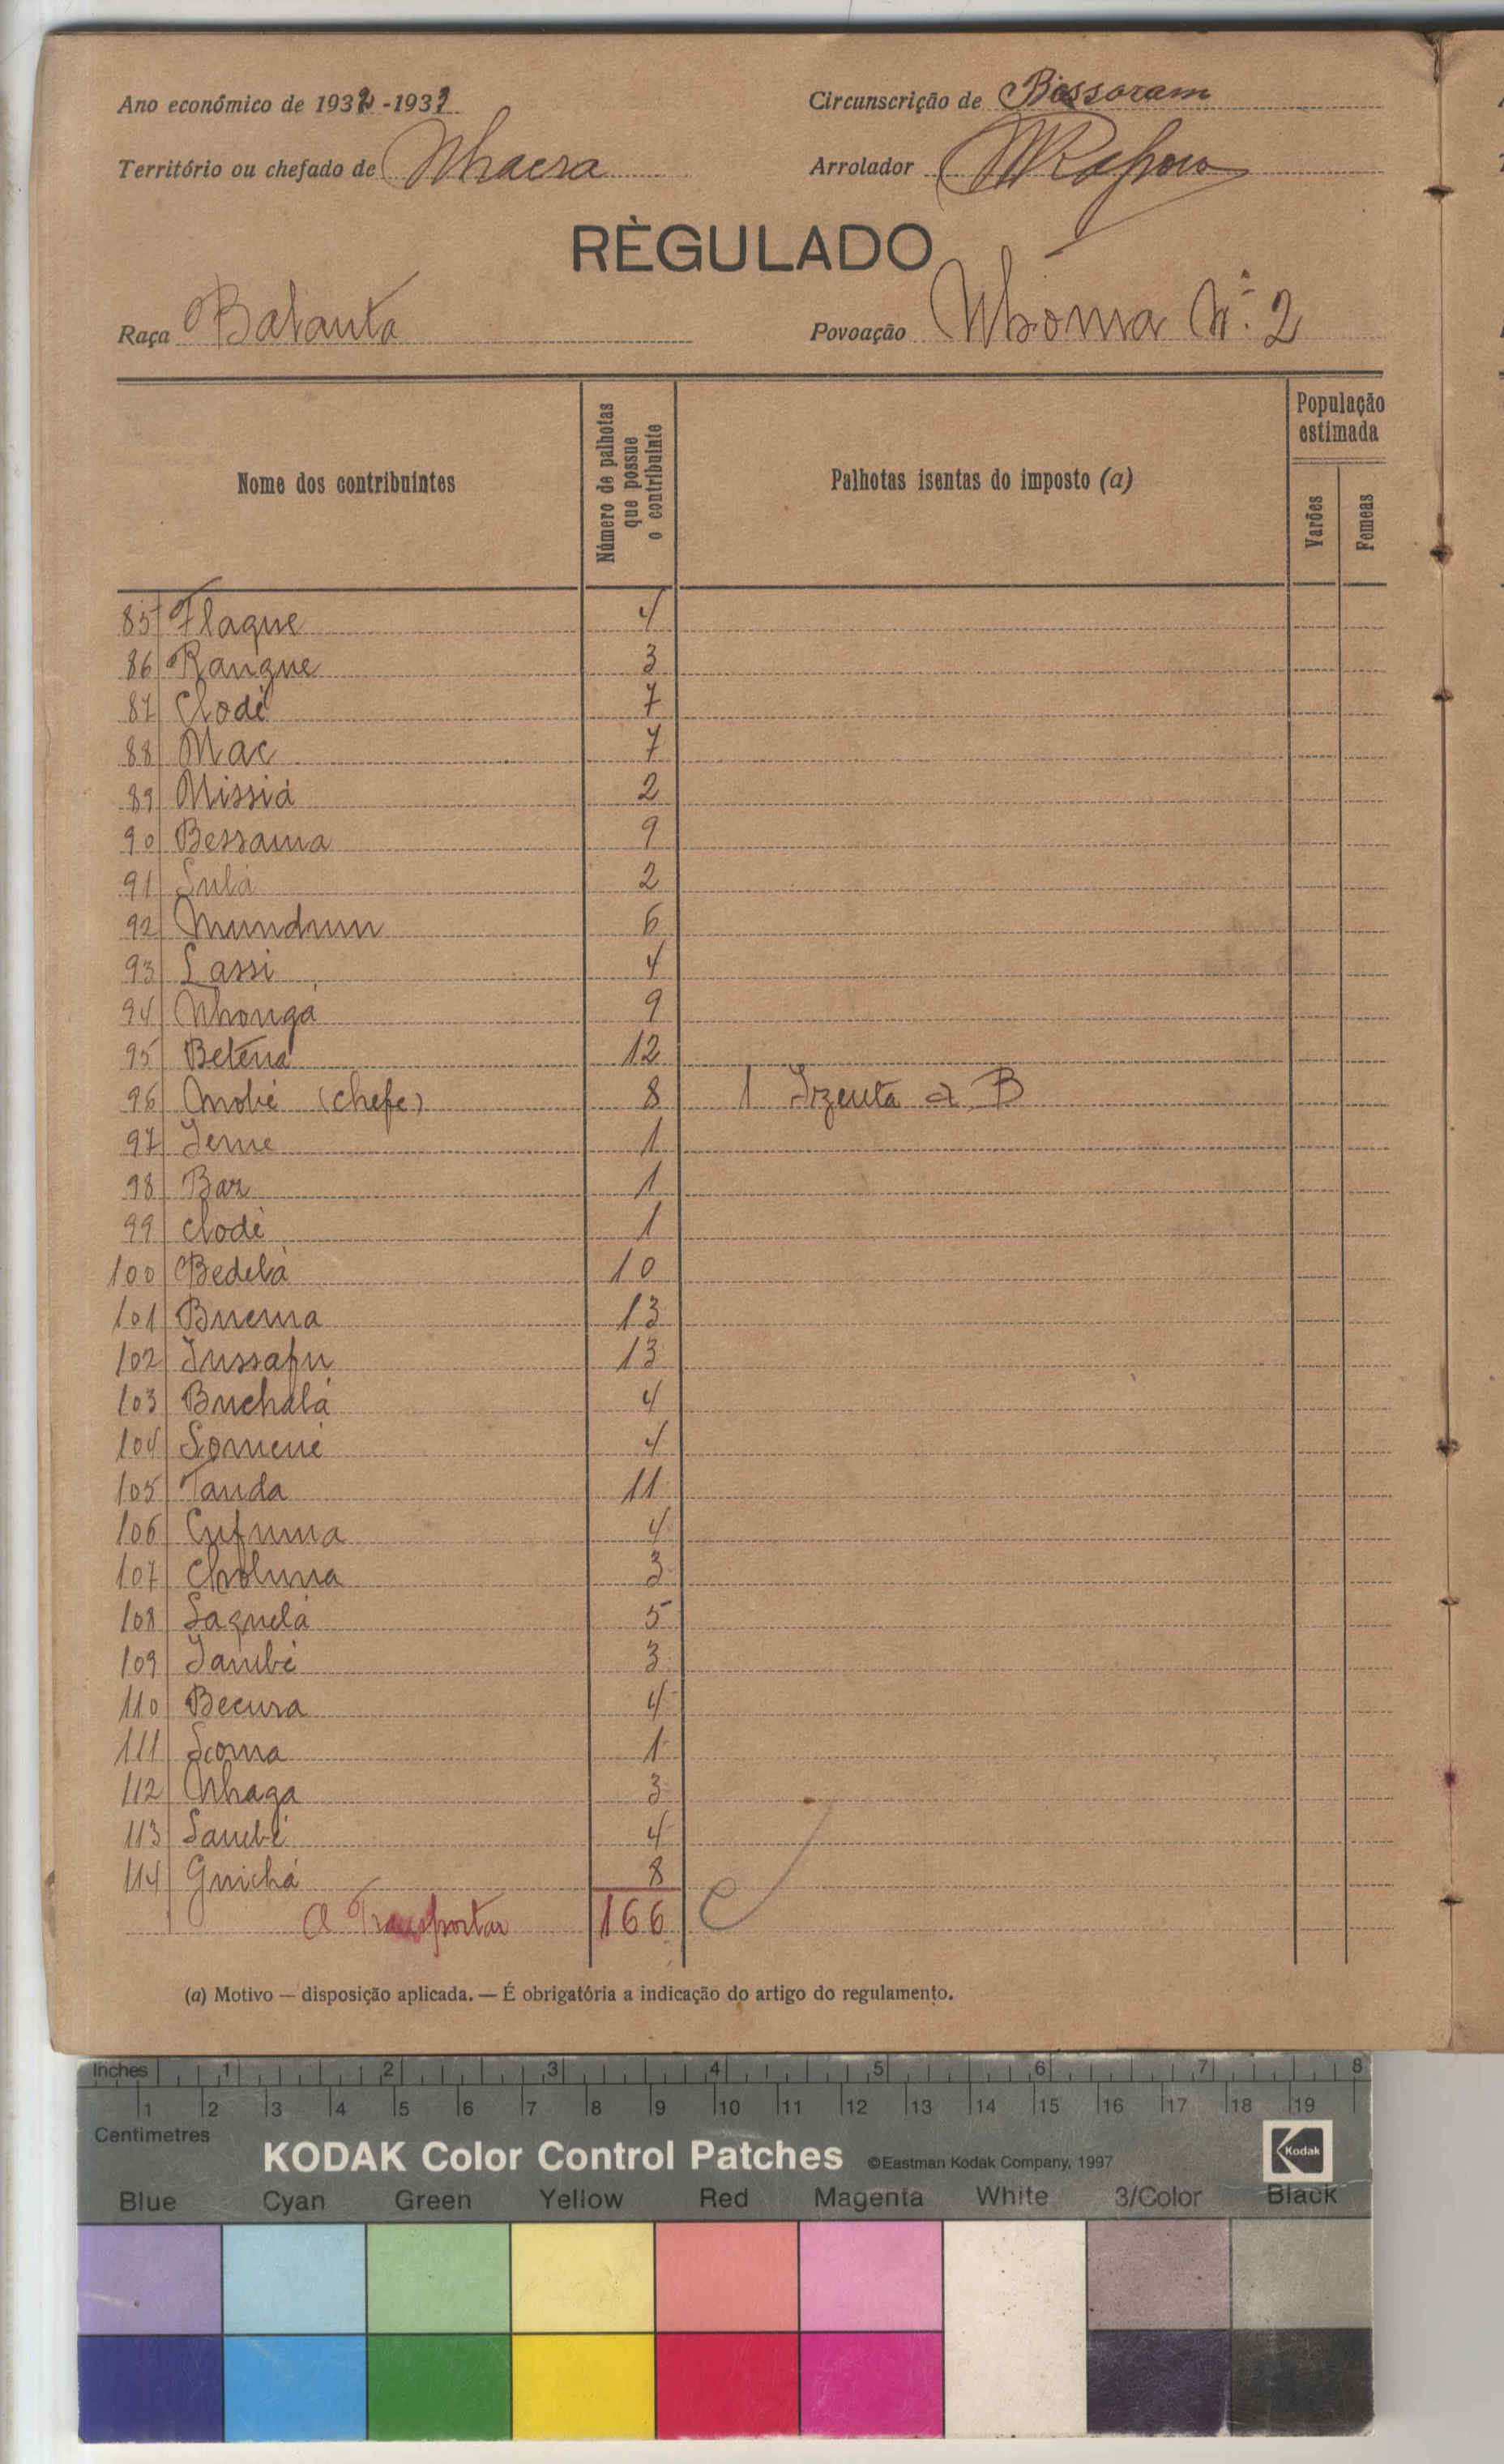 Ano económico de 1932-1932 Circunscrição de Bissoram
Território ou chefado de Nhaera Arrolador
RÈGULADO
Raça Balanta Povoação Nhoma Nº 2
Nome dos contribuintes Número de palhotas que possue o contribuinte Palhotas isentas do imposto (a) População estimada Varões Femeas
85 Flaque 4
86 Rangue 3
87 Clodé 7
88 Mac 7
89 Missiá 2
90 Bessama 9
91 Sulá 2
92 Mundum 6
93 Lassi 4
94 Nhongá 9
95 Betena 12
96 (chefe) 8 1 Izenta a) B
97 Jeme 1
98 Bar 1
99 Clodé 1
100 Bedelá 10
101 Buema 13
102 Jussafu 13
103 Buchalá 4
104 Somené 4
105 Tanda 11
106 Cufuma 4
107 Choluna 3
108 Saquelá 5
109 Jambé 3
110 Becura 4
111 Scoma 1
112 Nhaga 3
113 Sambé 4
114 Guichá 8
A Transportar 166
(a) Motivo — disposição aplicada. — É obrigatória a indicação do artigo do regulamento.
Inches 1 2 3 4 5 6 7 8
1 2 3 4 5 6 7 8 9 10 11 12 13 14 15 16 17 18 19
Centimetres
KODAK Color Control Patches ©Eastman Kodak Company, 1997 Kodak
Blue Cyan Green Yellow Red Magenta White 3/Color Black